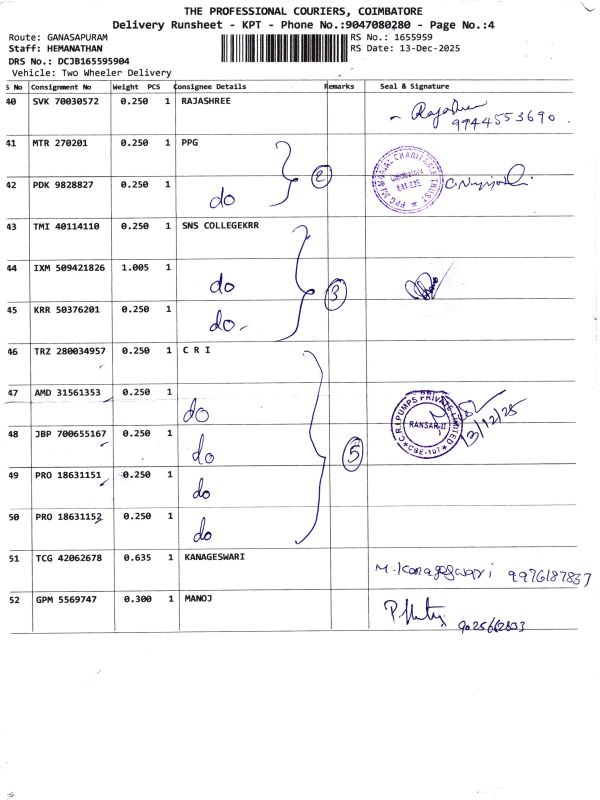 THE PROFESSIONAL COURIERS, COIMBATORE
Delivery Runsheet - KPT - Phone No.:9047080280 - Page No.:4
Route: GANASAPURAM RS No.: 1655959
Staff: HEMANATHAN RS Date: 13-Dec-2025
DRS No.: DCJB165595904
Vehicle: Two Wheeler Delivery
S No Consignment No Weight PCS Consignee Details Remarks Seal & Signature
40 SVK 70030572 0.250 1 RAJASHREE Rajashree
9944553690
41 MTR 270201 0.250 1 PPG
2
42 PDK 9828827 0.250 1 do
43 TMI 40114110 0.250 1 SNS COLLEGEKRR
44 IXM 509421826 1.005 1 do
3
45 KRR 50376201 0.250 1 do
46 TRZ 280034957 0.250 1 C R I
47 AMD 31561353 0.250 1 do C.R.I.PUMPS PRIVATE LIMITED
13/12/25
48 JBP 700655167 0.250 1 do
5
49 PRO 18631151 0.250 1 do
50 PRO 18631152 0.250 1 do
51 TCG 42062678 0.635 1 KANAGESWARI M.Kanageswari 9976187837
52 GPM 5569747 0.300 1 MANOJ